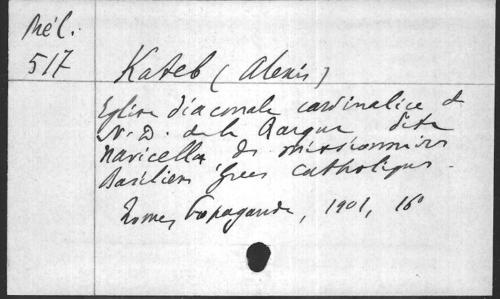 Mél.
517
Kateb (Alexis)
Eglise diaconale cardinalice de
N.-D. de la Barque dite
Navicella, des missionnaires
Basiliens Grecs catholiques.
Rome, Propagande, 1901, 16°